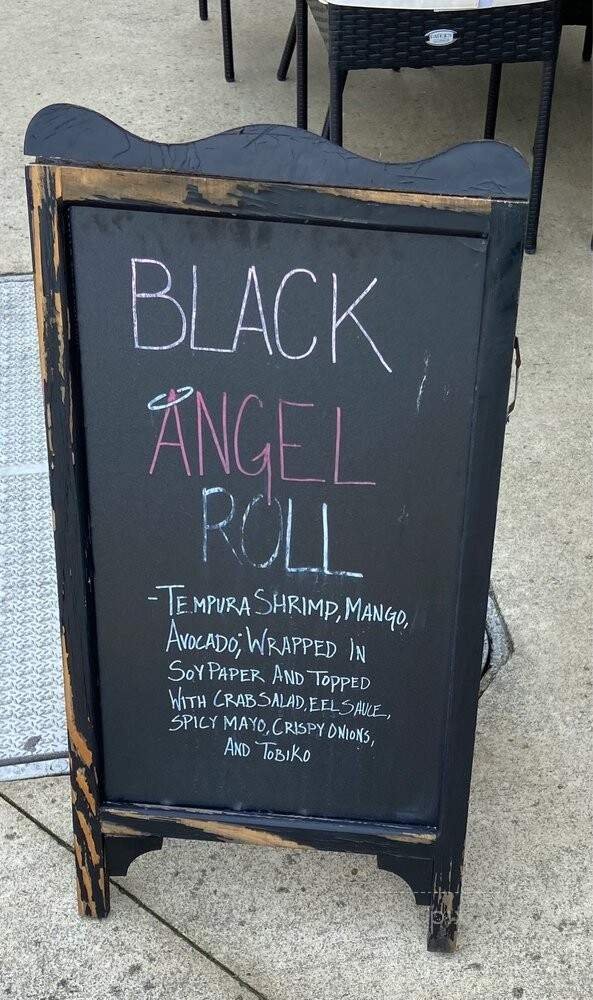 BLACK
ANGEL
ROLL
-TEMPURA SHRIMP, MANGO,
AVOCADO; WRAPPED IN
SOY PAPER AND TOPPED
WITH CRAB SALAD, EEL SAUCE,
SPICY MAYO, CRISPY ONIONS,
AND TOBIKO